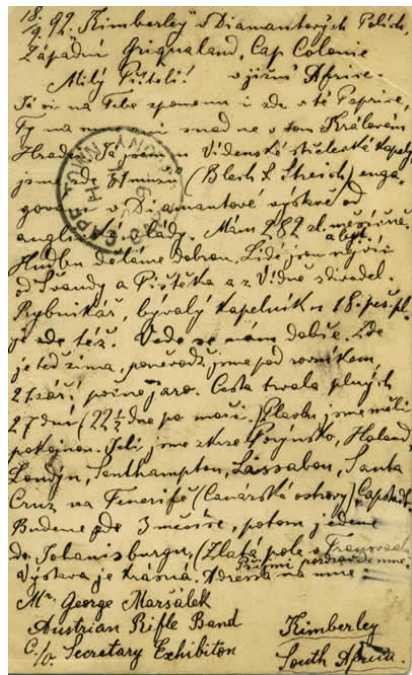 18.
/9. 92. "Kimberley" v Diamantových Polích,
Západní Griqualand, Cap Colonie
Milý Příteli! v jižní Africe.
Já si na Tebe zpomenu i zde v té Paprice,
Ty na mne snad ne v tom Králové
Hradci. Já jsem u Vídenské střelecké kapely
jsme zde 51 mužů (Blech & Streich) enga-
gováni v Diamantové výstavě od
anglické vlády. Mám 282 zl. měsíčně.
a byt.
Hudbu děláme dobrou. Lidé jsou nejvíc
od Švandy a Pištěka a z Vídně divadel.
Rybnikář, bývalý kapelník u 18. pěš. pl.
je zde též. Vede se nám dobře. Zde
je teď zima, poněvadž jsme pod rovníkem
21 září počne jaro. Cesta trvala plných
27 dní (22 1/2 dne po moři. Plavbu jsme měli
pokojnou. Jeli jsme skrze Porýnsko, Holand,
Londýn, Southampton, Lissabon, Santa
Cruz na Tenerifě (Canárské ostrovy) Capstadt.
Budeme zde 3 měsíce, potom jedeme
do Johanisburgu, (Zlatá pole v Transvaal,
Přijmi pozdrav ode mne.
Výstava je krásná. Adressa na mne:
Mr. George Maršálek
Austrian Rifle Band
C/o. Secretary Exhibiton
Kimberley
South Africa.
CAPE TOWN